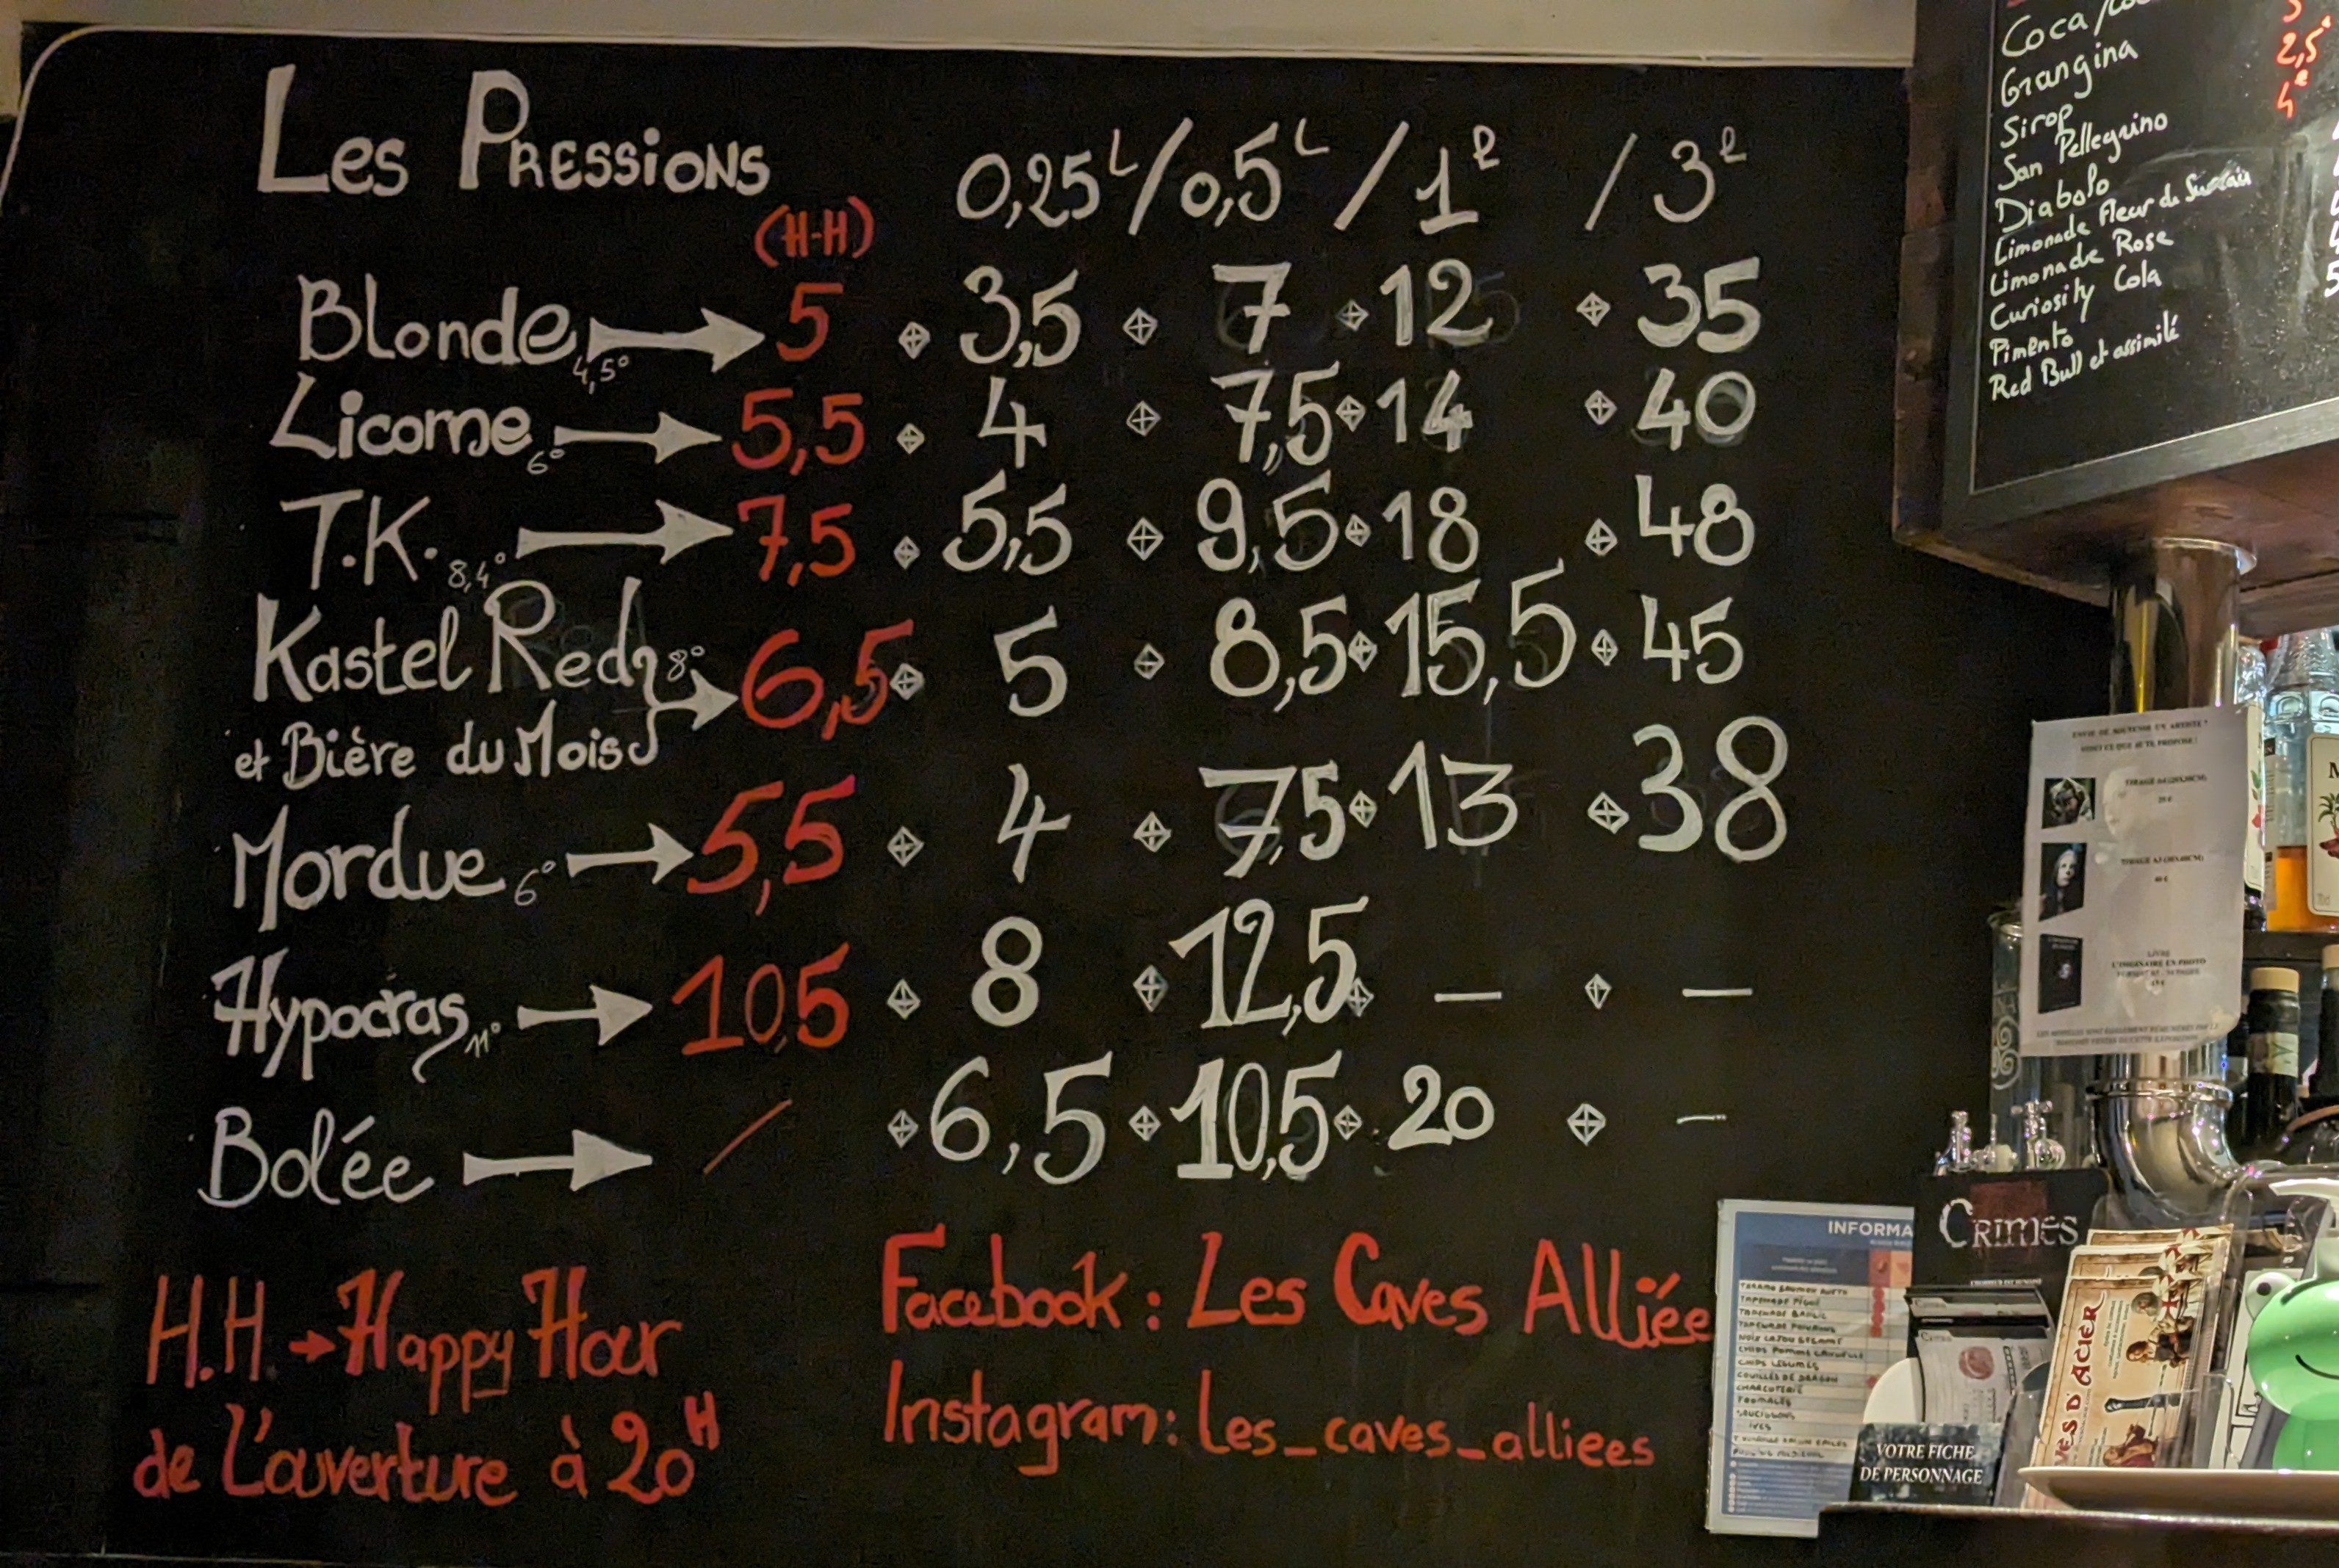 Les Pressions 0,25L / 0,5L / 1l / 3l
(H-H)
Blonde 4,5° 5 3,5 7 12 35
Licorne 6° 5,5 4 7,5 14 40
T.K. 8,4° 7,5 5,5 9,5 18 48
Kastel Red 8° 6,5 5 8,5 15,5 45
et Bière du Mois
Mordue 6° 5,5 4 7,5 13 38
Hypocras 11° 10,5 8 12,5 — —
Bolée / 6,5 10,5 20 —
H.H. → Happy Hour
de L'ouverture à 20H
Facebook : Les Caves Alliée
Instagram : les_caves_alliees
Coca
Orangina
Sirop
San Pellegrino
Diabolo
Limonade Fleur de Sureau
Limonade Rose
Curiosity Cola
Pimento
Red Bull et assimilé
2,5
4e
ENVIE DE SOUTENIR UN ARTISTE ?
VOICI CE QUE JE TE PROPOSE !
LIVRE
L'IMAGINAIRE EN PHOTO
INFORMA
CHARCUTERIE
CRIMES
VOTRE FICHE
DE PERSONNAGE
VES D'ACIER